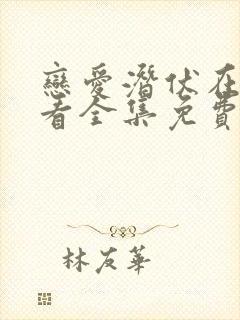 戀愛潛伏在
看全集免費
林友華